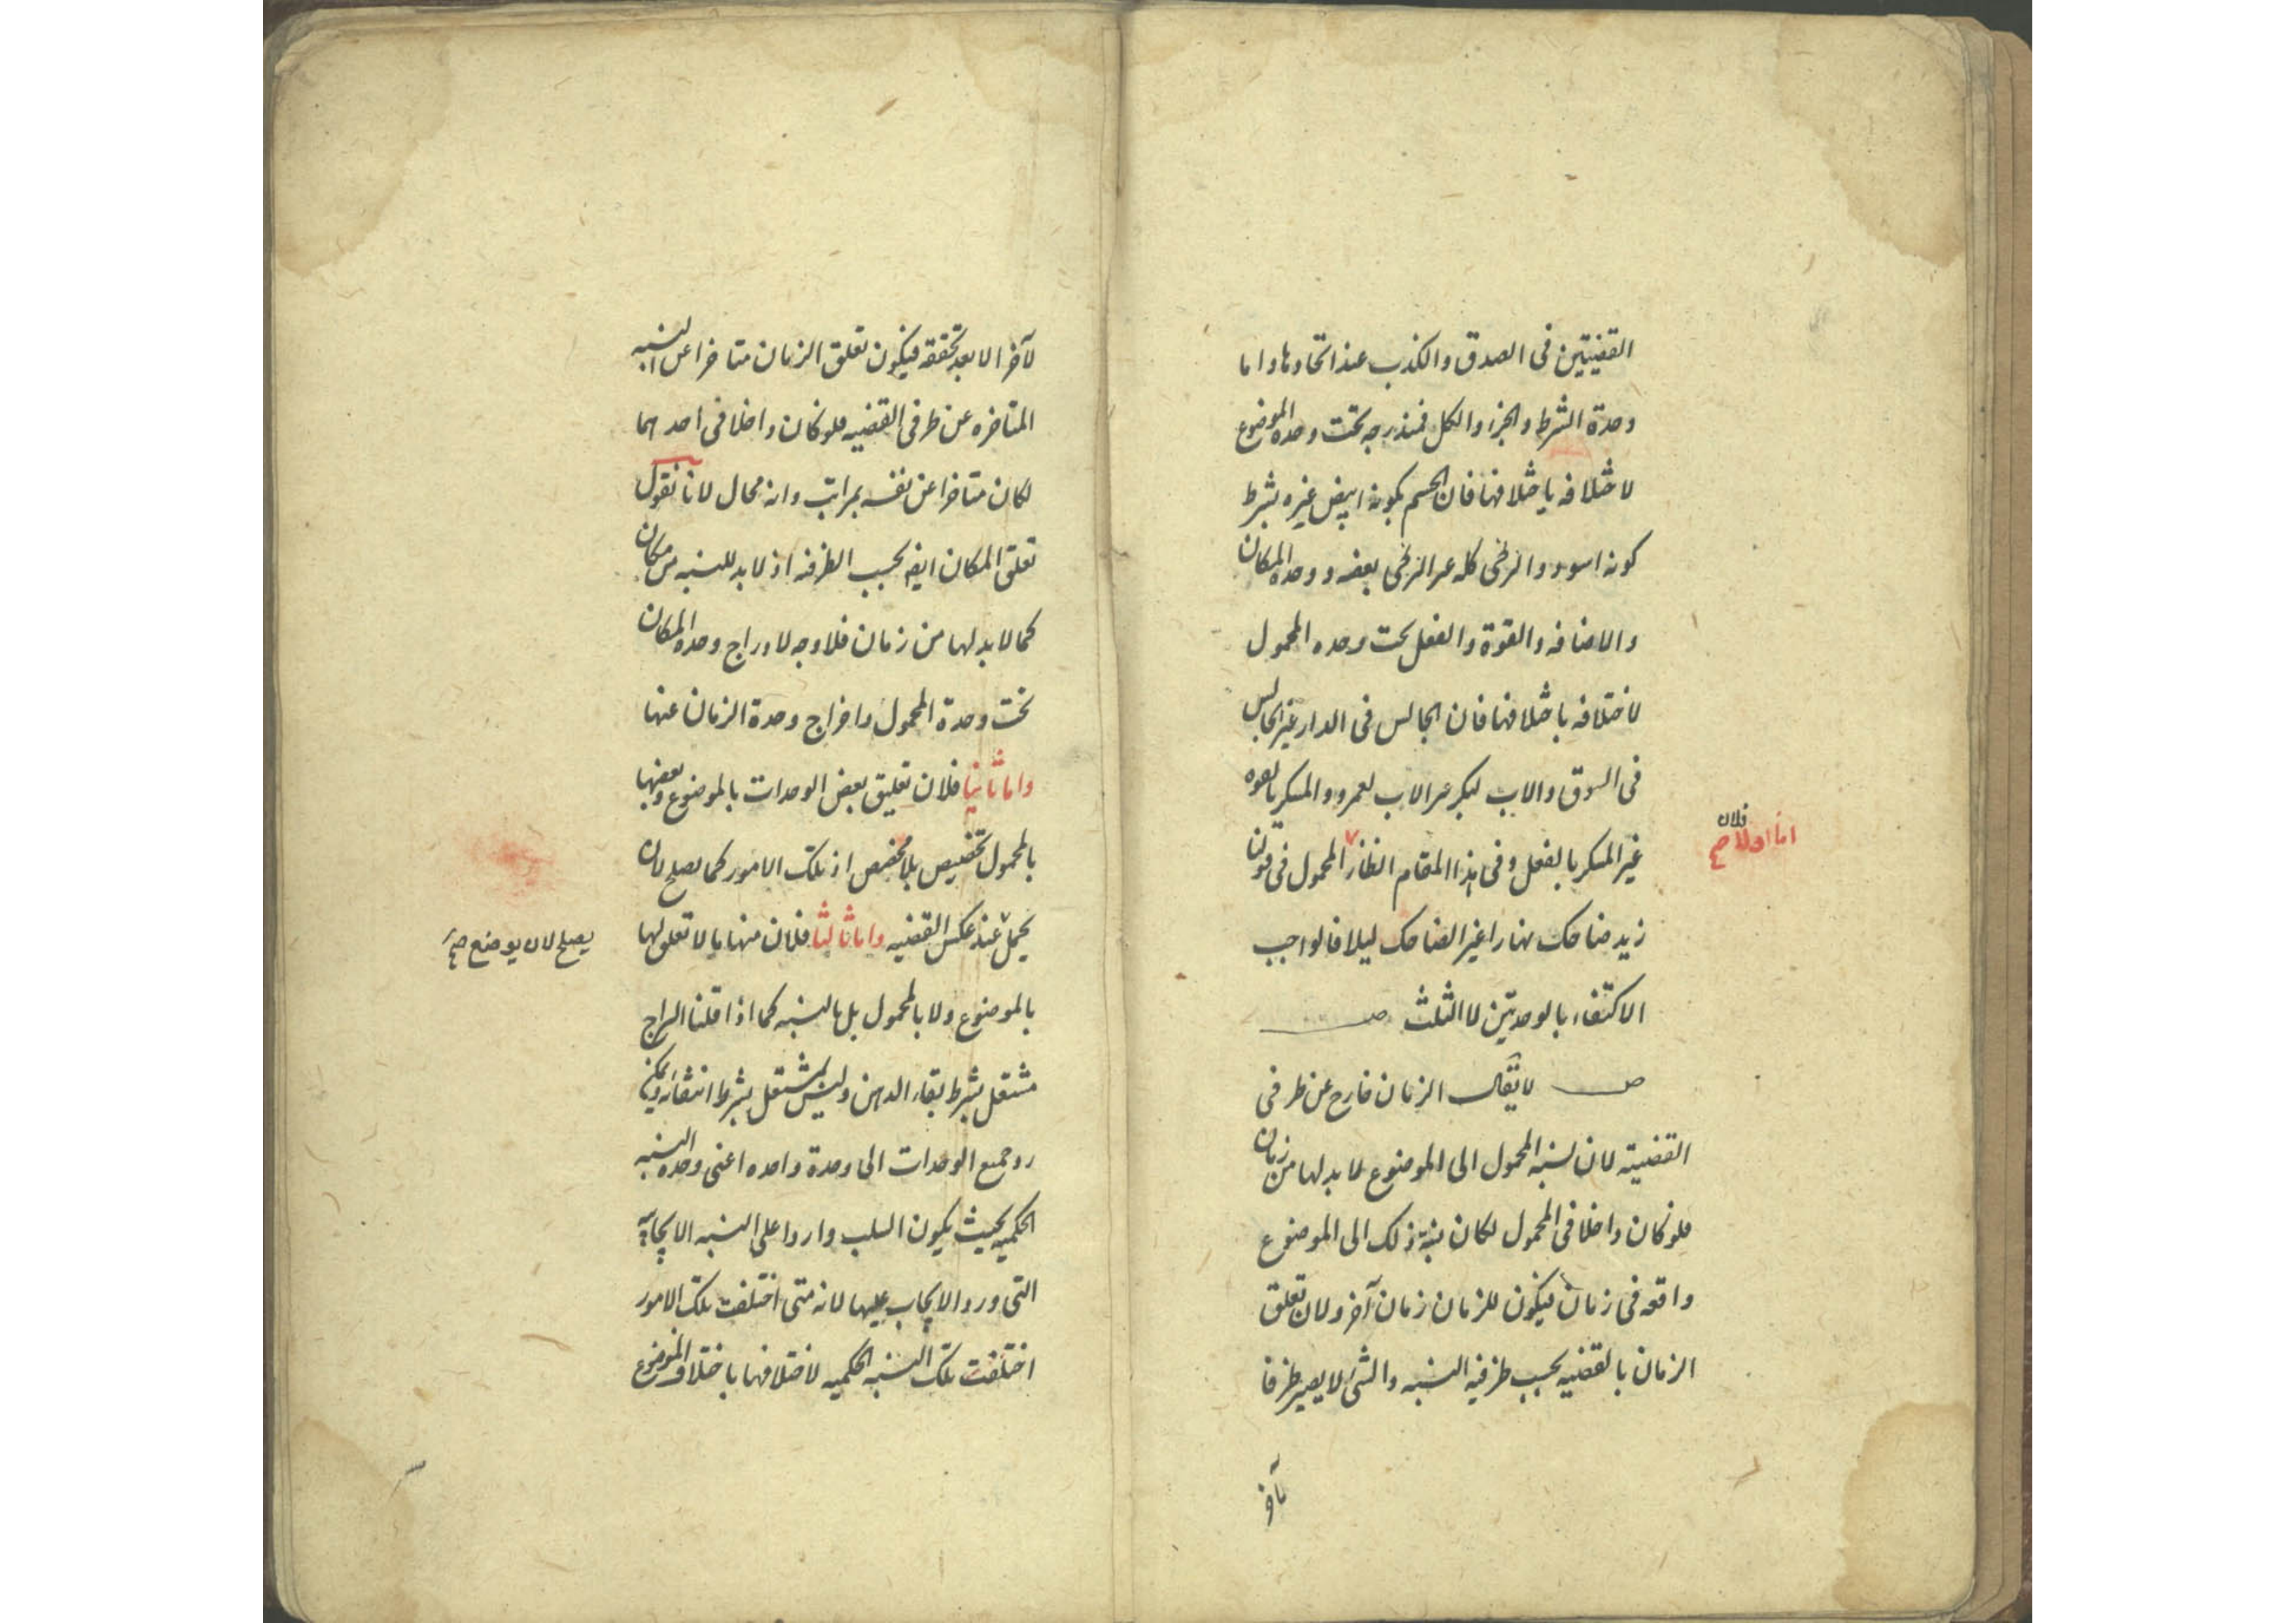 القضيتين فى الصدق والكذب عند اتحادها واما
وحدة الشرط والجزء والكل فمندرجه تحت وحده الموضوع
لاختلافه باختلافها فان الجسم بكونه ابيض غيره بشرط
كونه اسود والزنجى كله غير الزنجى بعضه ووحده المكان
والاضافه والقوة والفعل تحت وحده المحمول
لاختلافه باختلافها فان الجالس فى الدار غير الجالس
فى السوق والاب لبكر غير الاب لعمرو والمسكر بالقوه
غير المسكر بالفعل وفى هذا المقام انظار المحمول فى قولنا
اما اولا فلان صح
زيد ضاحك نهارا غير الضاحك ليلا فالواجب
الاكتفاء بالوحدتين لا الثلث ص
ص لا يقال الزمان خارج عن طرفى
القضيته لان نسبه المحمول الى الموضوع لا بد لها من زمان
فلو كان داخلا فى المحمول لكان نسبة ذلك الى الموضوع
واقعه فى زمان فيكون للزمان زمان آخر ولان تعلق
الزمان بالقضيه بحسب ظرفيه النسبه والشئ لا يصير ظرفا
لآخر
لآخر الا بعد تحققه فيكون تعلق الزمان متاخرا عن النسبه
المتاخره عن طرفى القضيه فلو كان داخلا فى احدهما
لكان متاخرا عن نفسه بمراتب وانه محال لانا نقول
تعلق المكان ايضا بحسب الظرفيه اذ لا بد للنسبه من مكان
كما لا بد لها من زمان فلا وجه لادراج وحده المكان
تحت وحدة المحمول واخراج وحدة الزمان عنها
واما ثانيا فلان تعليق بعض الوحدات بالموضوع وبعضها
بالمحمول تخصيص بلا مخصص اذ تلك الامور كما يصلح لان
يحمل عند عكس القضيه واما ثالثا فلان منها ما لا تعلق لها
يصلح لان يوضع صح
بالموضوع ولا بالمحمول بل بالنسبه كما اذا قلنا السراج
مشتعل بشرط بقاء الدهن وليس بمشتعل بشرط انتفائه ويمكن
رد جميع الوحدات الى وحدة واحده اعنى وحده النسبه
الحكميه بحيث يكون السلب واردا على النسبه الايجابيه
التى ورد الايجاب عليها لانه متى اختلفت تلك الامور
اختلفت تلك النسبه الحكميه لاختلافها باختلاف الموضوع